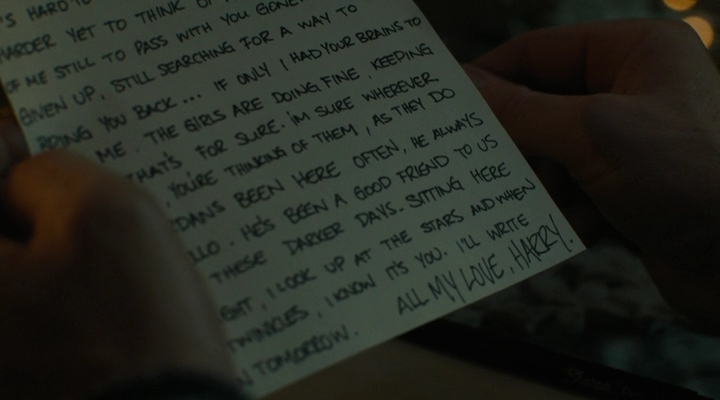 'S HARD TO
HARDER YET TO THINK OF
OF ME STILL TO PASS WITH YOU GONE.
GIVEN UP, STILL SEARCHING FOR A WAY TO
BRING YOU BACK... IF ONLY I HAD YOUR BRAINS TO
ME. THE GIRLS ARE DOING FINE, KEEPING
THAT'S FOR SURE. I'M SURE WHEREVER
, YOU'RE THINKING OF THEM, AS THEY DO
DAN'S BEEN HERE OFTEN, HE ALWAYS
LLO. HE'S BEEN A GOOD FRIEND TO US
THESE DARKER DAYS. SITTING HERE
GHT, I LOOK UP AT THE STARS AND WHEN
TWINKLES, I KNOW IT'S YOU. I'LL WRITE
N TOMORROW.
ALL MY LOVE, HARRY.